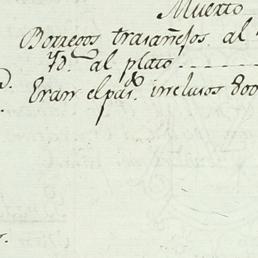 Muerto
Borregos trasañejos. al
Yd. al plato
Eran el pas.do inclusos 800